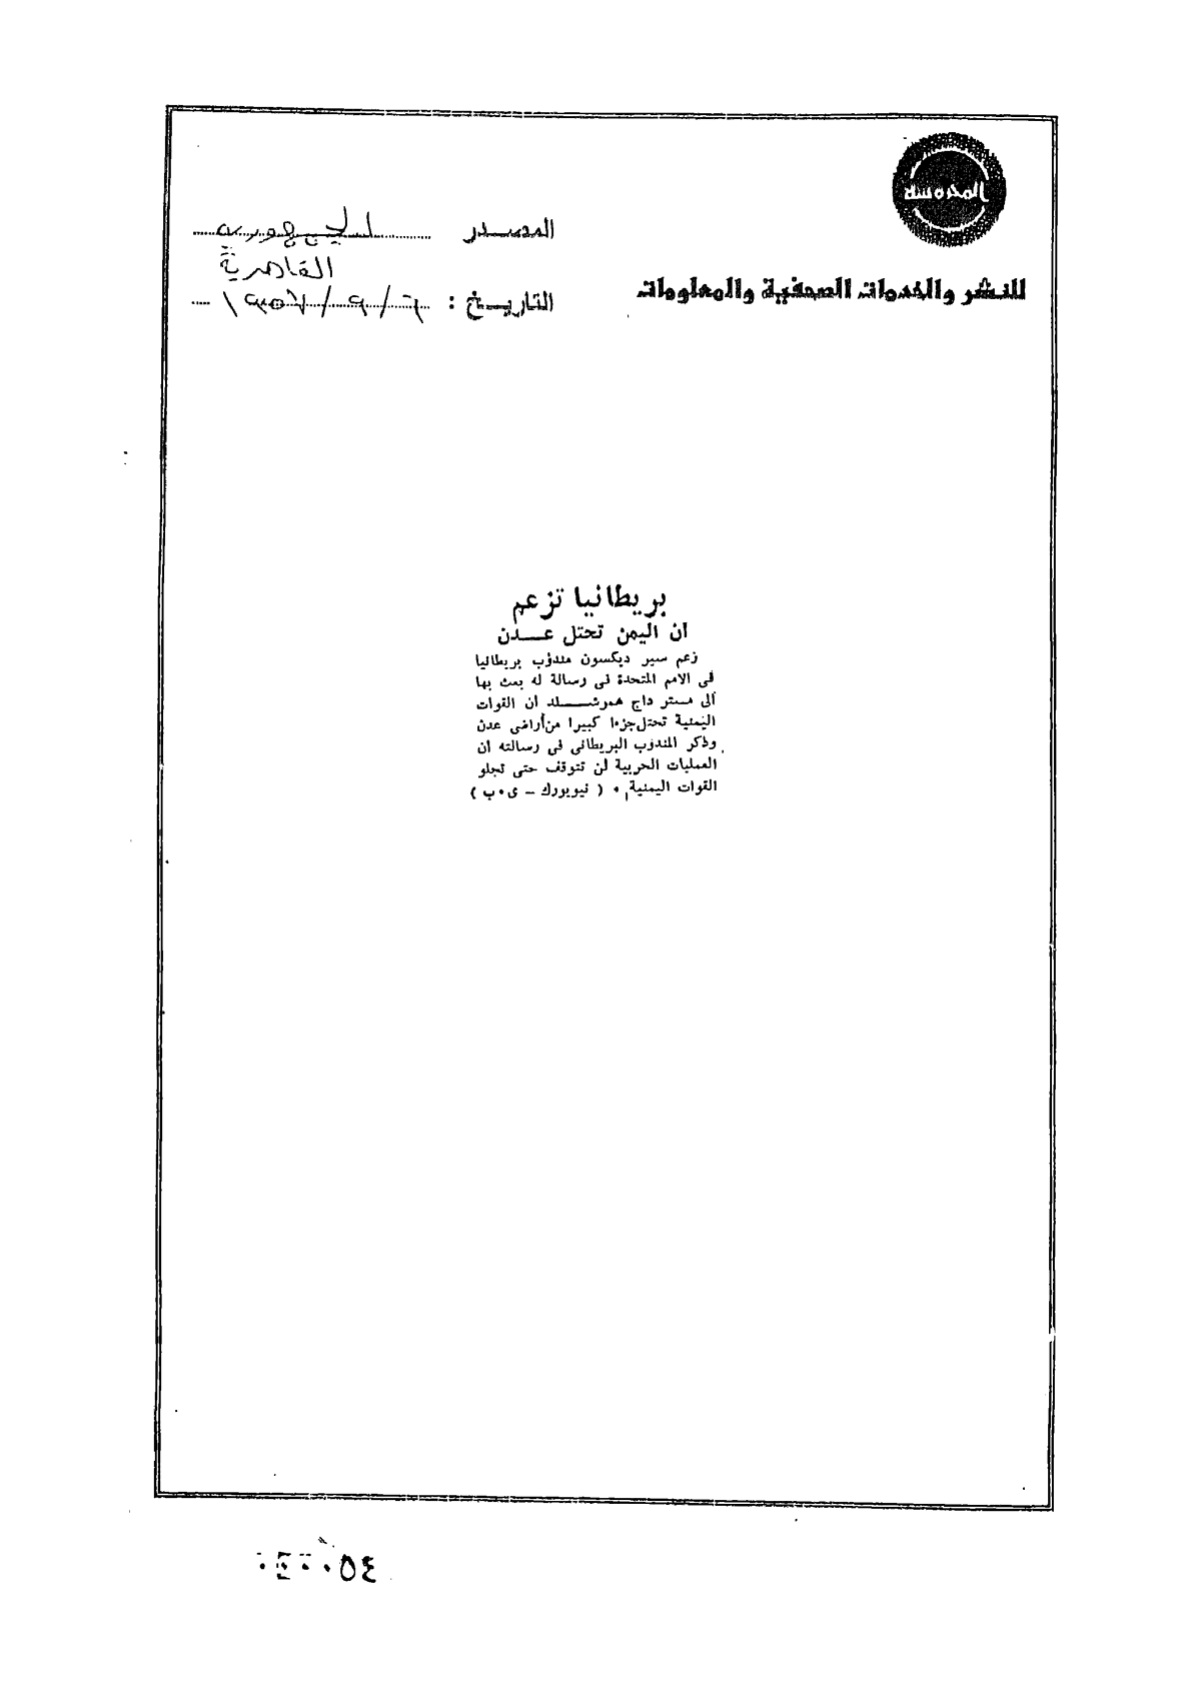 المحروسة
للنشر والخدمات الصحفية والمعلومات
المصدر الجمهورية
القاهرية
التاريخ : ٦ / ٩ / ١٩٥٧
بريطانيا تزعم
ان اليمن تحتل عـــدن
زعم سير ديكسون مندوب بريطانيا
فى الامم المتحدة فى رسالة له بعث بها
الى مستر داج همرشــــلد ان القوات
اليمنية تحتل جزءا كبيرا من أراضى عدن
وذكر المندوب البريطانى فى رسالته ان
العمليات الحربية لن تتوقف حتى تجلو
القوات اليمنية . ( نيويورك – ى.ب )